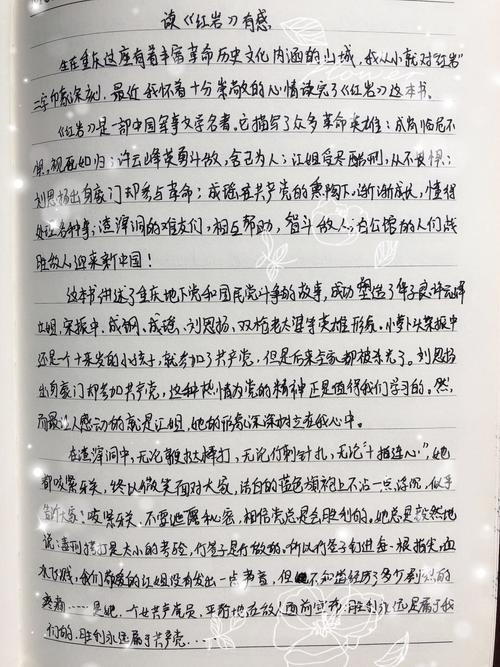 读《红岩》有感
生在重庆这座有着丰富革命历史文化内涵的山城,我从小就对"红岩"
二字印象深刻,最近我怀着十分崇敬的心情读完了《红岩》这本书。
《红岩》是一部中国军事文学名著。它描写了众多革命英雄:成岗临危不
惧,视死如归;许云峰英勇斗敌,舍己为人;江姐受尽酷刑,从不畏惧;
刘思扬出身豪门却参与革命;成瑶在共产党的熏陶下,渐渐成长,懂得
处理各种事;渣滓洞的难友们,相互帮助,智斗敌人;白公馆的人们战
胜敌人迎来新中国!
这本书讲述了重庆地下党和国民党斗争的故事,成功塑造了华子良许云峰
江姐,宋振中,成钢、成瑶、刘思扬、双枪老太婆等英雄形象。小萝卜头宋振中
还是一个十来岁的小孩子,就参加了共产党,但是后来全家都被杀光了。刘思扬
出身豪门却参加共产党,这种热情为党的精神正是值得我们学习的。然
而最让人感动的就是江姐,她的形象深深树立在我心中。
在渣滓洞中,无论鞭扎棒打,无论竹刺针扎,无论"十指连心",她
都咬紧牙关,终以微笑面对大家,洁白的蓝色旗袍上不沾一点浮沉,似乎
告诉大家:咬紧牙关,不要泄露秘密,相信党总是会胜利的。她总是毅然地
说:毒刑拷打是太小的考验,竹签子是竹做的。所以竹签子钉进每一根指尖,血
水飞溅,我们敬爱的江姐没有发出一点声音,但不知道经历了多少剧烈的
疼痛……是她,一个女共产党员,平静地在敌人面前宣布:胜利永远是属于我
们的,胜利永远属于共产党……